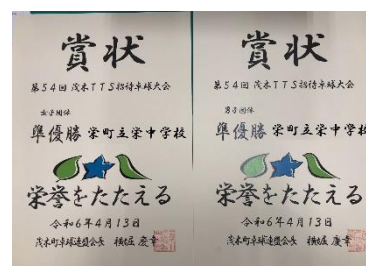 賞状
第54回 茂木TTS招待卓球大会
女子団体
準優勝 栄町立栄中学校
栄誉をたたえる
令和6年4月13日
茂木町卓球連盟会長 横堀 慶幸
賞状
第54回 茂木TTS招待卓球大会
男子団体
準優勝 栄町立栄中学校
栄誉をたたえる
令和6年4月13日
茂木町卓球連盟会長 横堀 慶幸